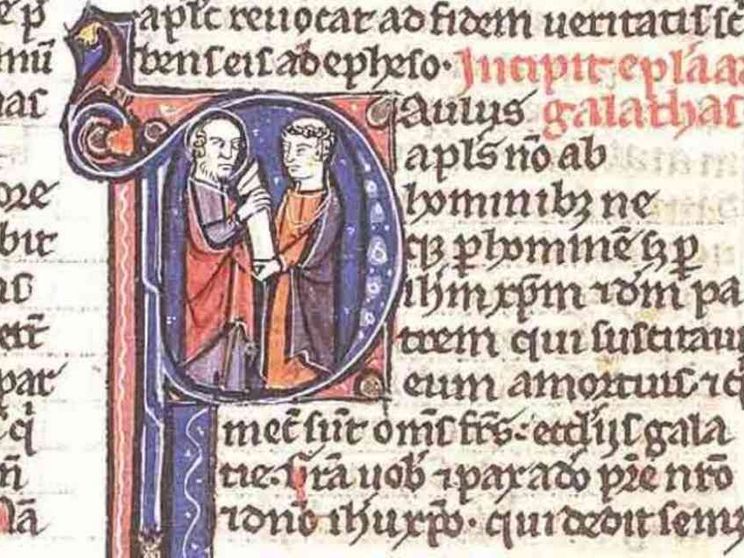 mū
ore
bit
par
apl̄c reuocat ad fidem ueritatis sc
bens eis ab epheso. Incipit epl̄a a
PAulus galathas
apl̄s nō ab
hominibꝫ ne
qꝫ ꝑ hominē sꝫ ꝑ
ihm̄ xp̄m ⁊ dm̄ pa
trem qui suscitaui
eum a mortuis ⁊ q
mec̄ sūt om̄s fr̄s: eccl̄ijs gala
tie. Gr̄a uob̄ ⁊ pax a do p̄re nr̄o
⁊ dn̄o ih̄u xp̄o. qui dedit sem